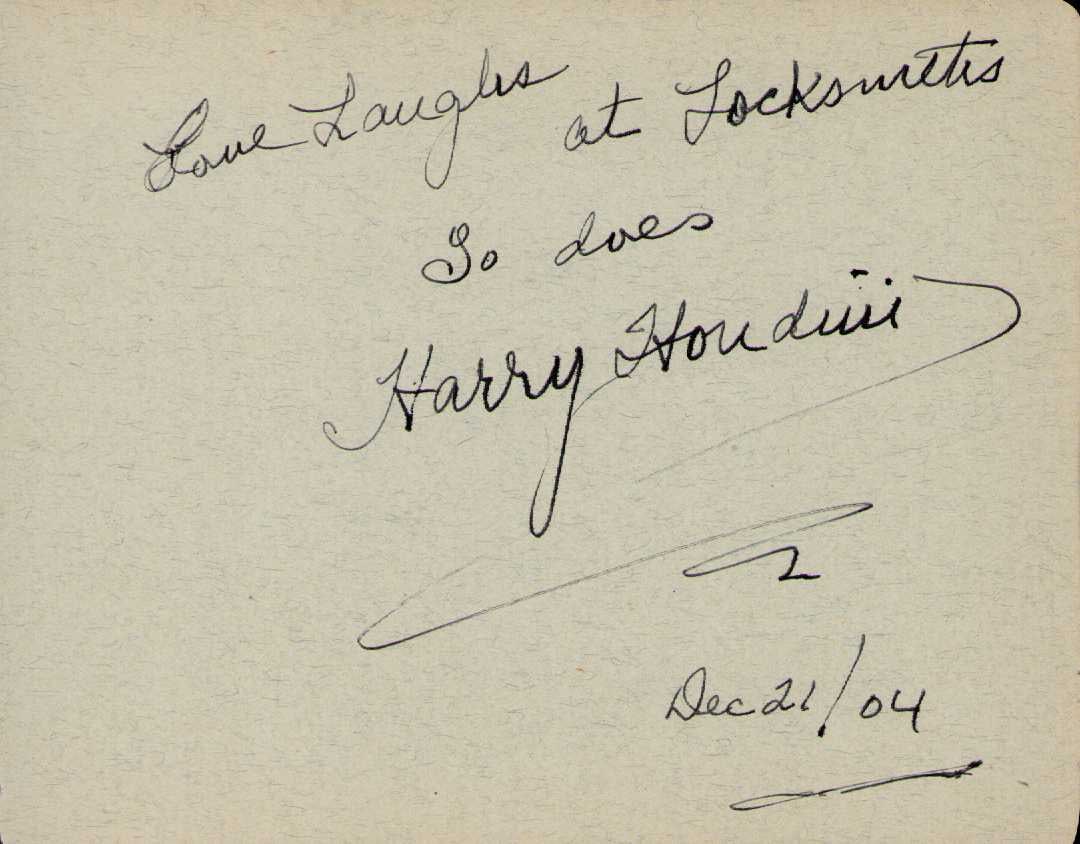 Love Laughs at Locksmiths
So does
Harry Houdini
Dec 21/04